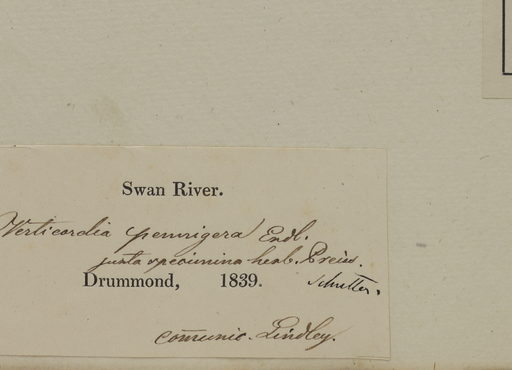 Swan River.
Verticordia pennigera Endl.
juxta specimina herb. Preiss.
Drummond, 1839. Schutter.
com̄unic. Lindley.